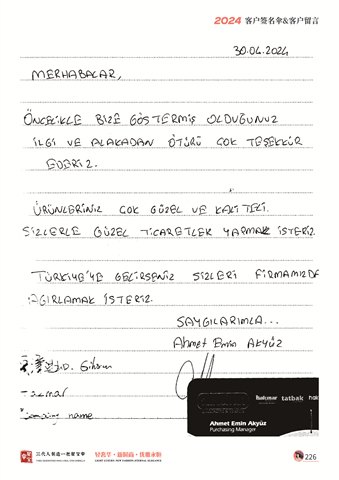 2024 客户签名伞&客户留言
30.04.2024
MERHABALAR,
ÖNCELİKLE BİZE GÖSTERMİŞ OLDUĞUNUZ
İLGİ VE ALAKADAN ÖTÜRÜ ÇOK TEŞEKKÜR
EDERİZ.
ÜRÜNLERİNİZ ÇOK GÜZEL VE KALİTELİ.
SİZLERLE GÜZEL TİCARETLER YAPMAK İSTERİZ.
TÜRKİYE'YE GELİRSENİZ SİZLERİ FİRMAMIZDA
AĞIRLAMAK İSTERİZ.
SAYGILARIMLA...
Ahmet Emin AKYÜZ
name
hakmar tatbak
Ahmet Emin Akyüz
Purchasing Manager
三代人制造一把好宝伞
226